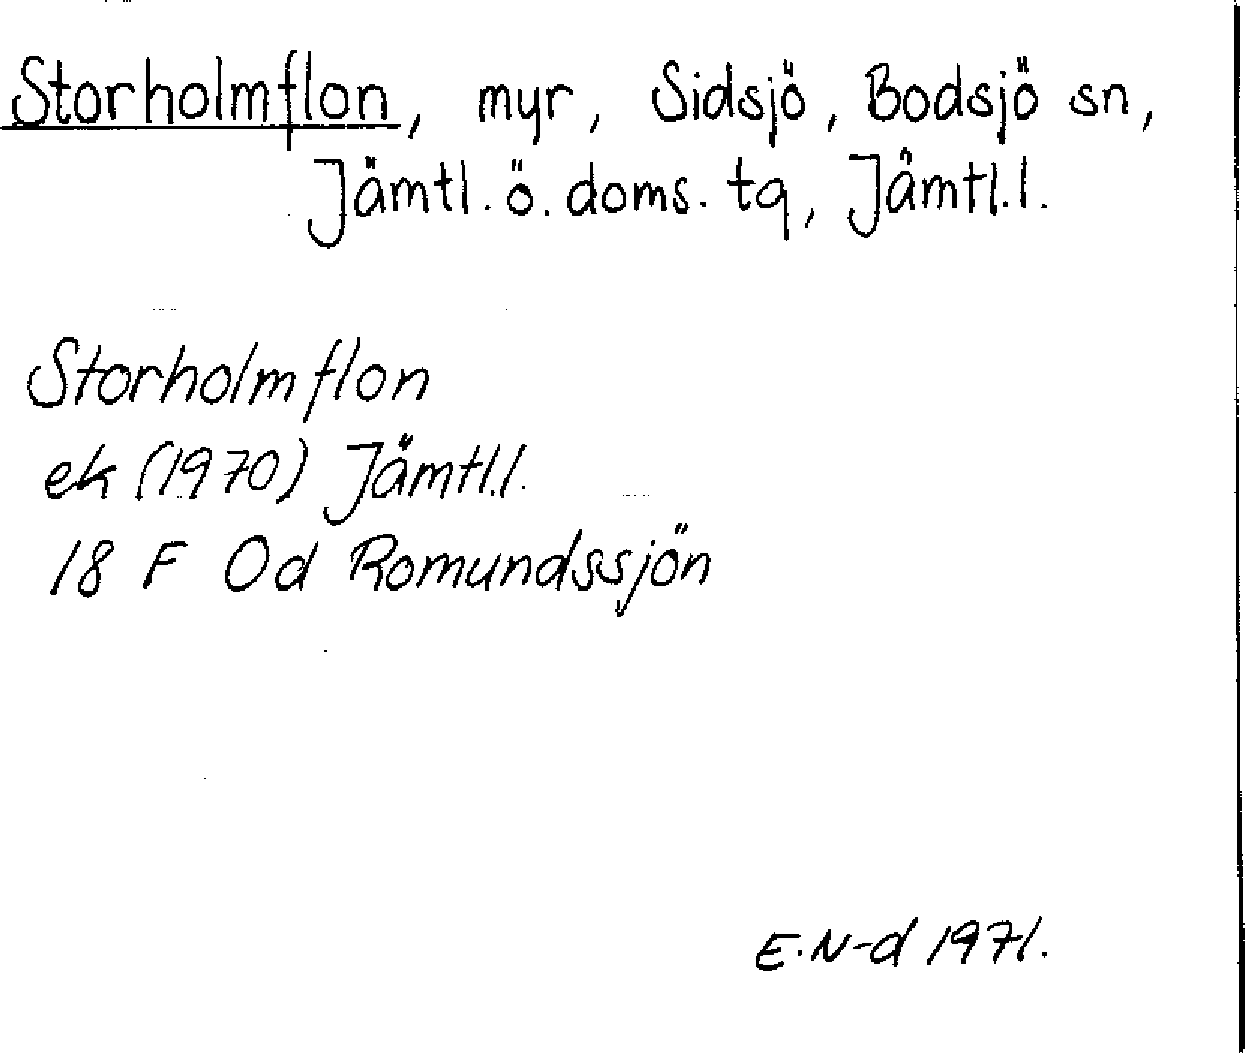 Storholmflon, myr, Sidsjö, Bodsjö sn,
Jämtl. ö. doms. tg, Jämtl.l.
Storholmflon
ek (1970) Jämtl.l.
18 F Od Romundssjön
E.N-d 1971.